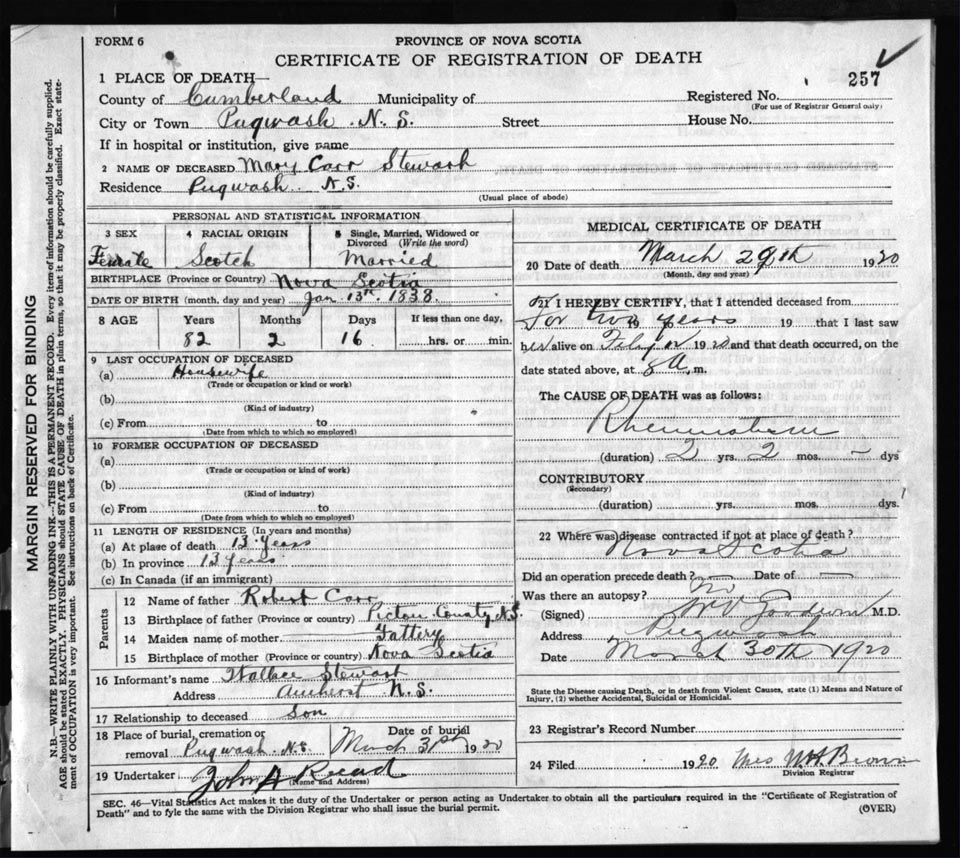 FORM 6
PROVINCE OF NOVA SCOTIA
CERTIFICATE OF REGISTRATION OF DEATH
257
1 PLACE OF DEATH—
County of Cumberland Municipality of
Registered No.
(For use of Registrar General only)
City or Town Pugwash N. S. Street House No.
If in hospital or institution, give name
2 NAME OF DECEASED Mary Carr Stewart
Residence Pugwash N.S.
(Usual place of abode)
PERSONAL AND STATISTICAL INFORMATION
3 SEX 4 RACIAL ORIGIN 5 Single, Married, Widowed or Divorced (Write the word)
Female Scotch Married
BIRTHPLACE (Province or Country) Nova Scotia
DATE OF BIRTH (month, day and year) Jan. 13th, 1838.
8 AGE Years Months Days If less than one day,
82 2 16 hrs. or min.
9 LAST OCCUPATION OF DECEASED
(a) Housewife
(Trade or occupation or kind or work)
(b)
(Kind of industry)
(c) From to
(Date from which to which so employed)
10 FORMER OCCUPATION OF DECEASED
(a)
(Trade or occupation or kind or work)
(b)
(Kind of industry)
(c) From to
(Date from which to which so employed)
11 LENGTH OF RESIDENCE (In years and months)
(a) At place of death 13 years
(b) In province 13 years
(c) In Canada (if an immigrant)
Parents
12 Name of father Robert Carr
13 Birthplace of father (Province or country) Pictou County N.S.
14 Maiden name of mother
15 Birthplace of mother (Province or country) Nova Scotia
16 Informant's name Wallace Stewart
Address Amherst N.S.
17 Relationship to deceased Son
18 Place of burial, cremation or removal Pugwash N.S.
Date of burial March 31st 1920
19 Undertaker John A Read
(Name and Address)
MEDICAL CERTIFICATE OF DEATH
20 Date of death March 29th 1920
(Month, day and year)
21 I HEREBY CERTIFY, that I attended deceased from
For two years 19 19 that I last saw
her alive on 1920 and that death occurred, on the
date stated above, at 8 A. m.
The CAUSE OF DEATH was as follows:
Rheumatism
(duration) 2 yrs. 2 mos. – dys
CONTRIBUTORY
(Secondary)
(duration) yrs. mos. dys.
22 Where was disease contracted if not at place of death?
Nova Scotia
Did an operation precede death? Date of —
Was there an autopsy? No
(Signed) M.D.
Address Pugwash
Date March 30th 1920
State the Disease causing Death, or in death from Violent Causes, state (1) Means and Nature of
Injury, (2) whether Accidental, Suicidal or Homicidal.
23 Registrar's Record Number
24 Filed 1920 Brown
Division Registrar
SEC. 46—Vital Statistics Act makes it the duty of the Undertaker or person acting as Undertaker to obtain all the particulars required in the "Certificate of Registration of
Death" and to fyle the same with the Division Registrar who shall issue the burial permit.
(OVER)
MARGIN RESERVED FOR BINDING
N.B.—WRITE PLAINLY WITH UNFADING INK—THIS IS A PERMANENT RECORD. Every item of information should be carefully supplied.
AGE should be stated EXACTLY. PHYSICIANS should STATE CAUSE OF DEATH in plain terms, so that it may be properly classified. Exact state-
ment of OCCUPATION is very important. See instructions on back of Certificate.